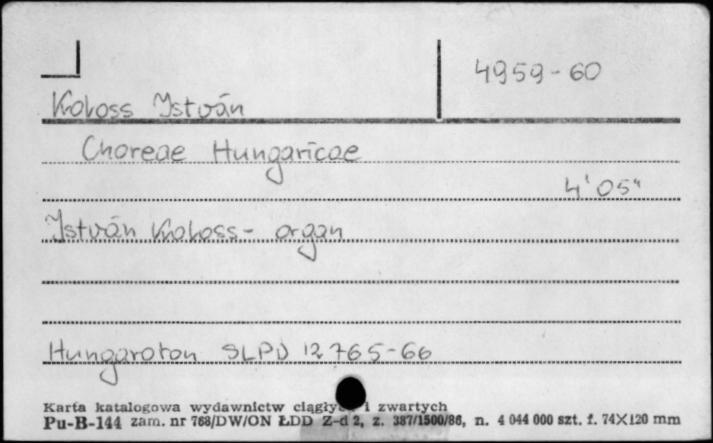 4959-60
Koloss István
Choreae Hungaricae
4'05"
István Koloss - organ
Hungaroton SLPD 12765-66
Karta katalogowa wydawnictw ciągłych i zwartych
Pu-B-144 zam. nr 768/DW/ON ŁDD Z-d 2, z. 387/1500/86, n. 4 044 000 szt. f. 74X120 mm